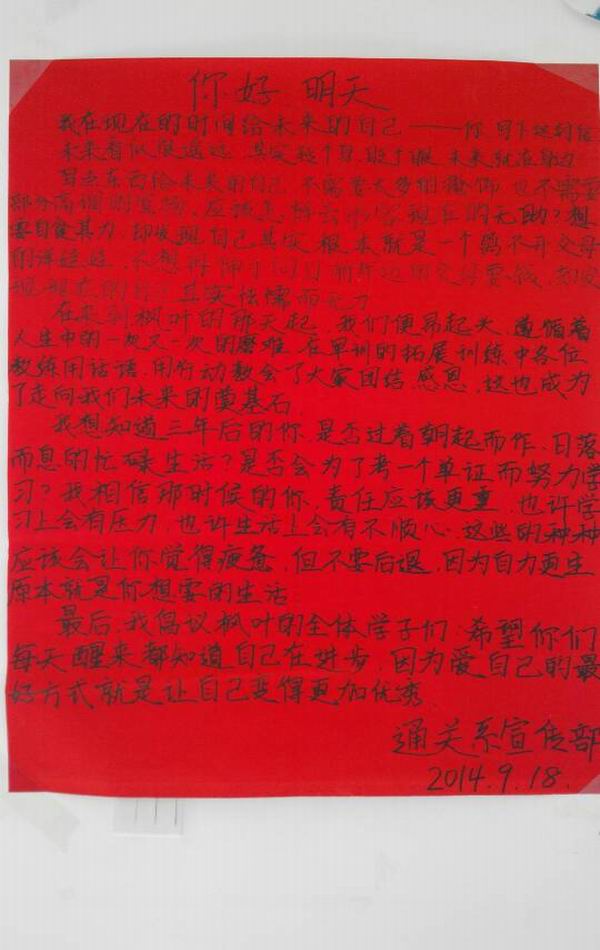 你好 明天
我在现在的时间给未来的自己——你 写下这封信
未来看似很遥远 其实 未来就在
写点东西给未来的自己 不需要太多的 也不需要
部分高调的 应该怎 现在的无助？想
要自食其力 却发现自己其实根本就是一个离不开父母
的 不想再伸手 父母要钱
其实怯懦而无力
在来到枫叶的那天起 我们便昂起头 遵循着
人生中的一次又一次的磨难 在军训的拓展训练中各位
教练用话语 用行动教会了大家团结 感恩 这也成为
了走向我们未来的奠基石
我想知道三年后的你 是否过着朝起而作 日落
而息的忙碌生活？是否会为了考一个单证而努力学
习？我相信那时候的你 责任应该更重 也许学
习上会有压力，也许生活上会有不顺心 这些的种种
应该会让你觉得疲惫，但不要后退，因为自力更生
原本就是你想要的生活
最后，我倡议枫叶的全体学子们 希望你们
每天醒来都知道自己在进步，因为爱自己的最
好方式就是让自己变得更加优秀
通关系宣传部
2014.9.18.